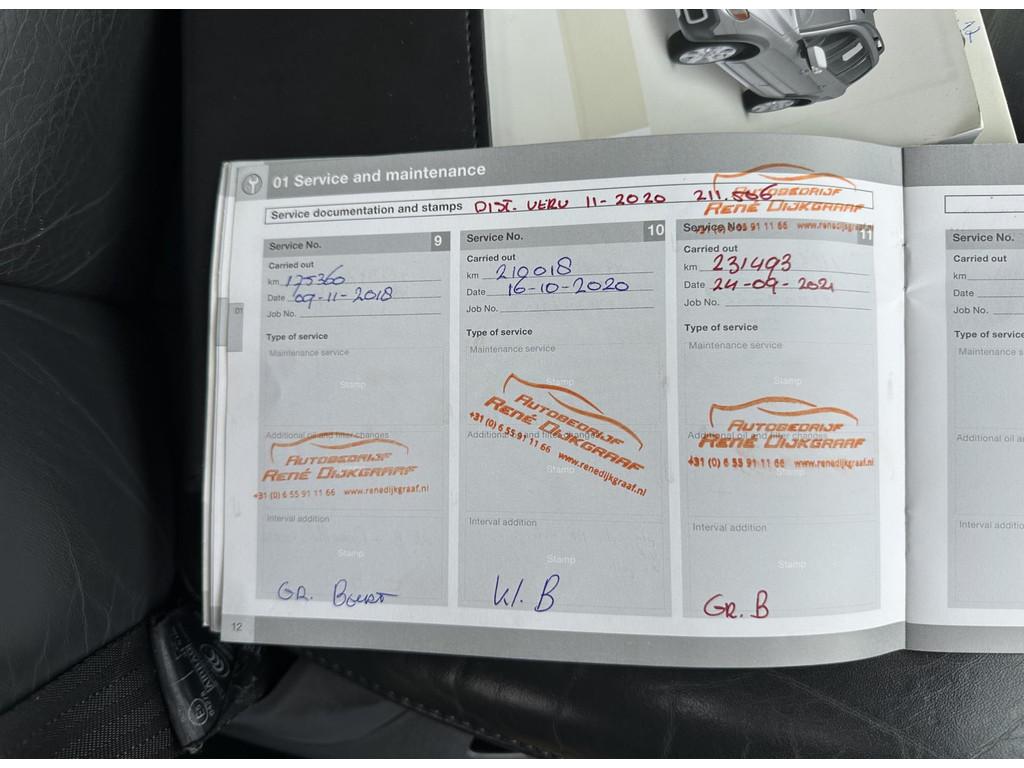 12
01 Service and maintenance
Service documentation and stamps DIST. VERV 11-2020 211.556
AUTOBEDRIJF
RENÉ DIJKGRAAF
+31 (0) 6 55 91 11 66 www.renedijkgraaf.nl
01
Service No. 9
Carried out
km 175360
Date 09-11-2018
Job No.
Type of service
Maintenance service
Stamp
Additional oil and filter changes
AUTOBEDRIJF
RENÉ DIJKGRAAF
+31 (0) 6 55 91 11 66 www.renedijkgraaf.nl
Interval addition
Stamp
GR. BEURT
Service No. 10
Carried out
km 210018
Date 16-10-2020
Job No.
Type of service
Maintenance service
Stamp
AUTOBEDRIJF
RENÉ DIJKGRAAF
+31 (0) 6 55 91 11 66 www.renedijkgraaf.nl
Additional oil and filter changes
Stamp
Interval addition
Stamp
Kl. B
Service No. 11
Carried out
km 231493
Date 24-09-2021
Job No.
Type of service
Maintenance service
Stamp
AUTOBEDRIJF
Additional oil and filter changes
RENÉ DIJKGRAAF
+31 (0) 6 55 91 11 66 www.renedijkgraaf.nl
Interval addition
Stamp
GR. B
12
Service No.
Carried out
km
Date
Job No.
Type of service
Maintenance s
Additional oil a
Interval additio